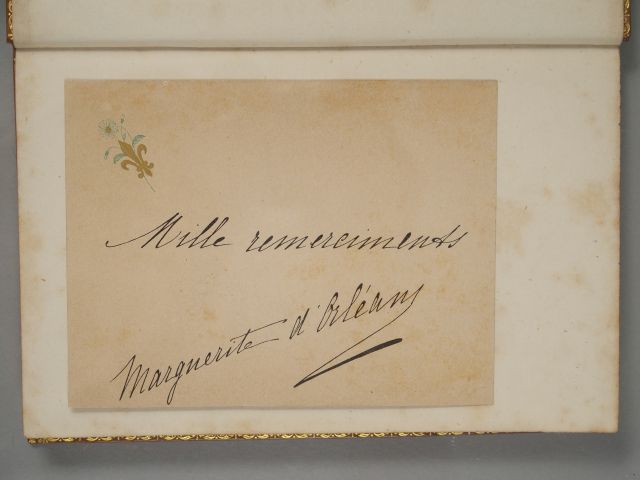 Mille remerciments
Marguerite d'Orléans